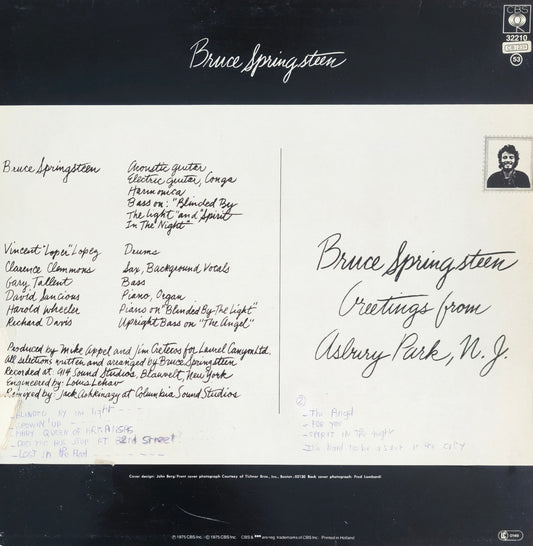 CBS
32210
53
Bruce Springsteen
Bruce Springsteen Acoustic guitar
Electric guitar, Conga
Harmonica
Bass on: "Blinded By
The Light" and "Spirit
In The Night"
Vincent "Loper" Lopez Drums
Clarence Clemmons Sax, Background Vocals
Gary Tallent Bass
David Sancious Piano, Organ
Harold Wheeler Piano on "Blinded By The Light"
Richard Davis Upright Bass on "The Angel"
Produced by Mike Appel and Jim Cretecos for Laurel Canyon Ltd.
All selections written and arranged by Bruce Springsteen
Recorded at: 914 Sound Studios, Blauvelt, New York
Engineered by: Louis Lehav
Remixed by: Jack Ashkinazy at Columbia Sound Studios
Bruce Springsteen
Greetings from
Asbury Park, N. J.
- BLINDED BY the light - - -
- GROWIN' UP -
- MARY QUEEN OF ARKANSAS
- DOES THE BUS STOP AT 82nd STREET
- LOST IN the flood - - -
2
- The Angel
- FOR YOU
- SPIRIT IN the night
- It's hard to be a saint in the CITY
Cover design: John Berg Front cover photograph Courtesy of Tichnor Bros., Inc., Boston, 02130 Back cover photograph: Fred Lombardi
℗ 1975 CBS Inc. © 1975 CBS Inc. CBS & are reg. trademarks of CBS Inc. Printed in Holland